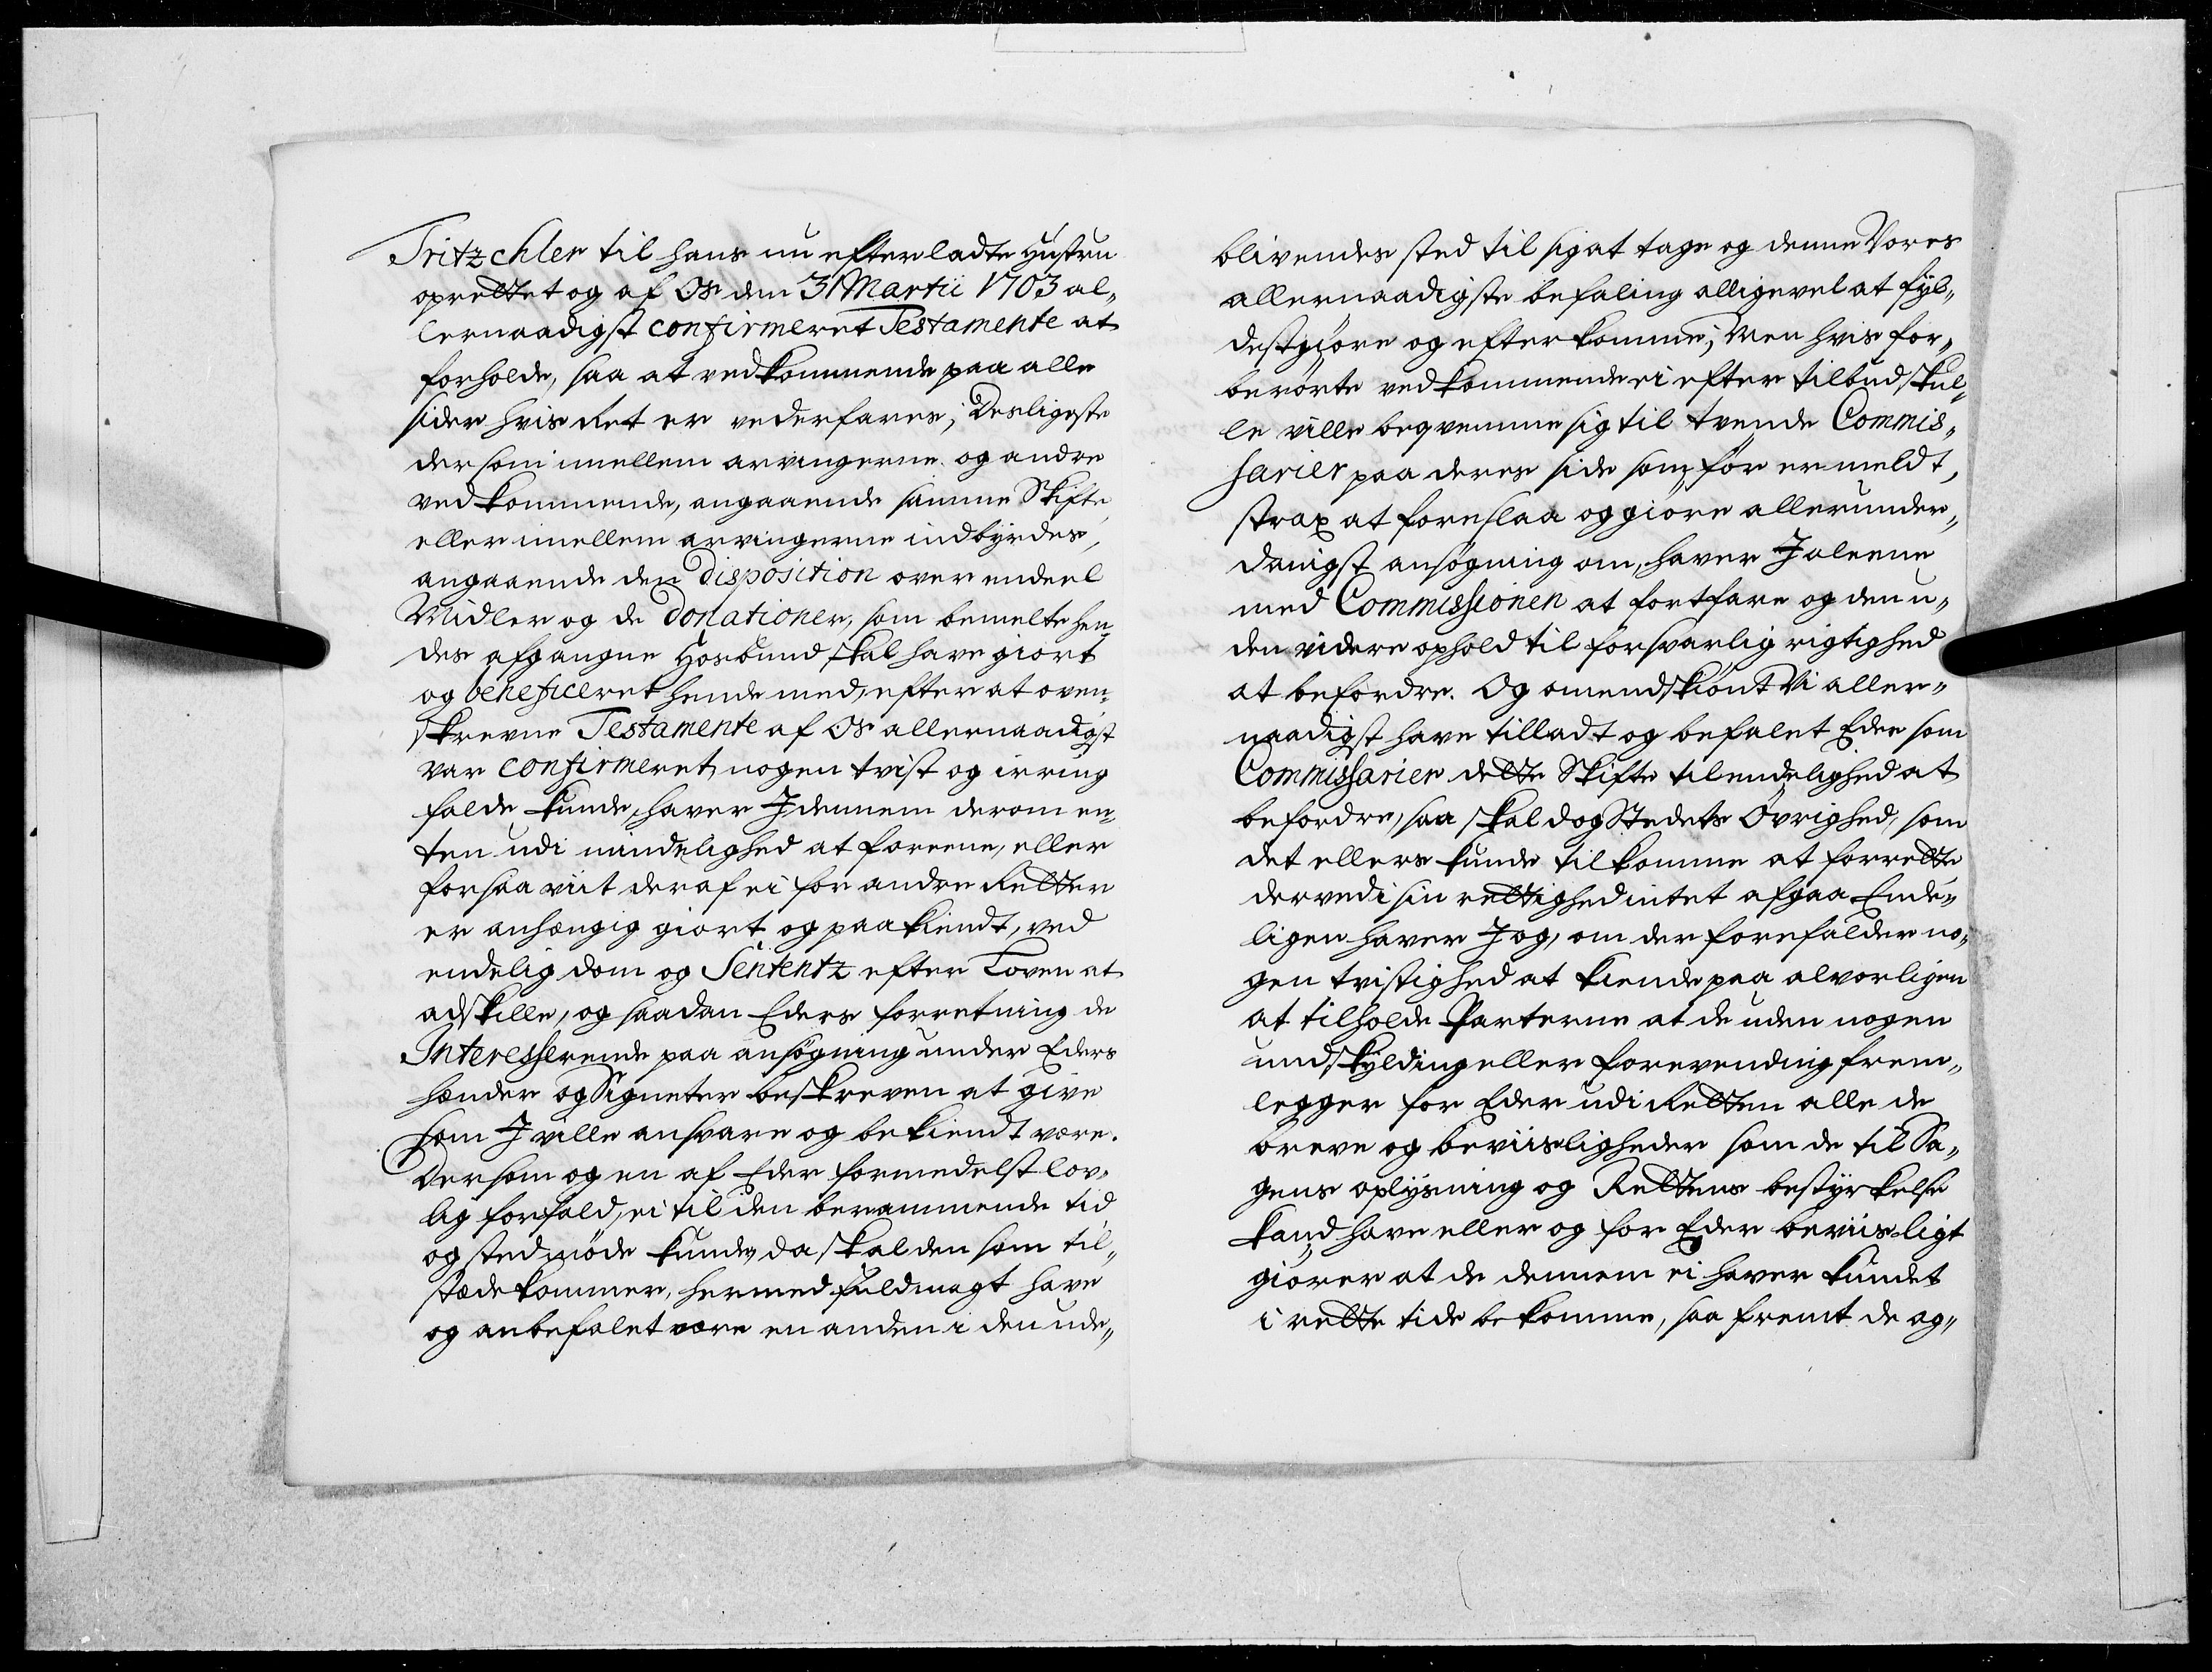 Tritzchler til hans nu efterladte Hustru
oprettet og af Os den 31 Martii 1703 al„
lernaadigst confirmeret Testamente at
forholde, saa at vedkommende paa alle
sider hvis Ret er vederfares; Desligeste
dersom imellem arvingerne og andre
vedkommende, angaaende samme Skifte,
eller imellem arvingerne indbyrdes,
angaaende den Disposition over endeel
Midler og de Donationer, som bemelte hen„
des afgangne Hosbund skal have giort
og beneficeret hende med, efter at oven„
skrevne Testamente af Os allernaadigst
var confirmeret, nogen tvist og irring
falde kunde, haver I dennem derom en„
ten udi mindelighed at foreene, eller
forsaa viit deraf ei for andre Retter
er anhængig giort og paakiendt, ved
endelig dom og Sententz efter Loven at
adskille, og saadan Eders forretning de
Interesserende paa ansøgning under Eders
hænder og Signeter beskreven at give
som I ville ansvare og bekiendt være.
Dersom og en af Eder formedelst lov„
lig forfald, ei til den berammende tid
og sted møde kunde, da skal den som til„
stæde kommer, hermed fuldmagt have
og anbefalet være en anden i den ude„
blivendes sted til sig at tage og denne Vores
allernaadigste befaling alligevel at fyl„
destgiøre og efterkomme; Men hvis for„
berørte vedkommende ei efter tilbud skul„
le ville beqvemme sig til tvende Commis„
sarier paa deres side som før er meldt,
strax at foreslaa og giøre allerunder„
danigst ansøgning om, haver I aleene
med Commissionen at fortfare og den u„
den videre ophold til forsvarlig rigtighed
at befordre. Og omendskiønt Vi aller„
naadigst have tilladt og befalet Eder som
Commissarier dette Skifte til endelighed at
befordre, saa skal dog Stedets Øvrighed, som
det ellers kunde tilkomme at forrette
derved i sin rettighed intet afgaa Ende„
ligen haver I og, om der forefalder no„
gen tvistighed at kiende paa alvorligen
at tilholde Parterne at de uden nogen
undskylding eller forevending frem„
legger for Eder udi Retten alle de
breve og beviisligheder som de til Sa„
gens oplysning og Rettens bestyrkelse
kand have eller og for Eder beviisligt
giører at de dennem ei haver kundet
i rette tide bekomme, saa fremt de ag„